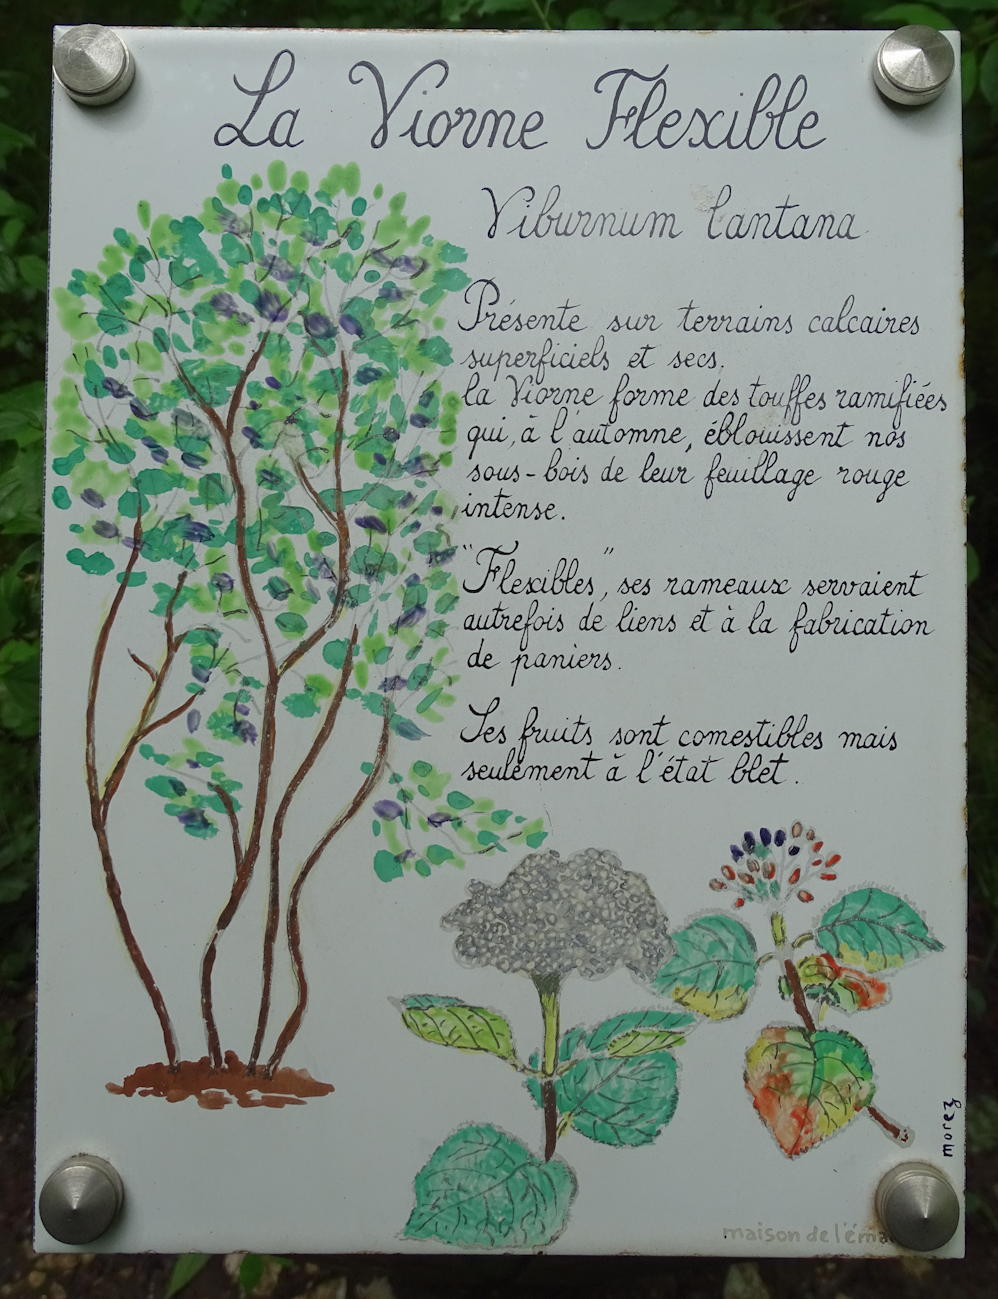 La Viorne Flexible
Viburnum lantana
Présente sur terrains calcaires
superficiels et secs.
la Viorne forme des touffes ramifiées
qui, à l'automne, éblouissent nos
sous-bois de leur feuillage rouge
intense.
"Flexibles", ses rameaux servaient
autrefois de liens et à la fabrication
de paniers.
Ses fruits sont comestibles mais
seulement à l'état blet.
morez
maison de l'éma